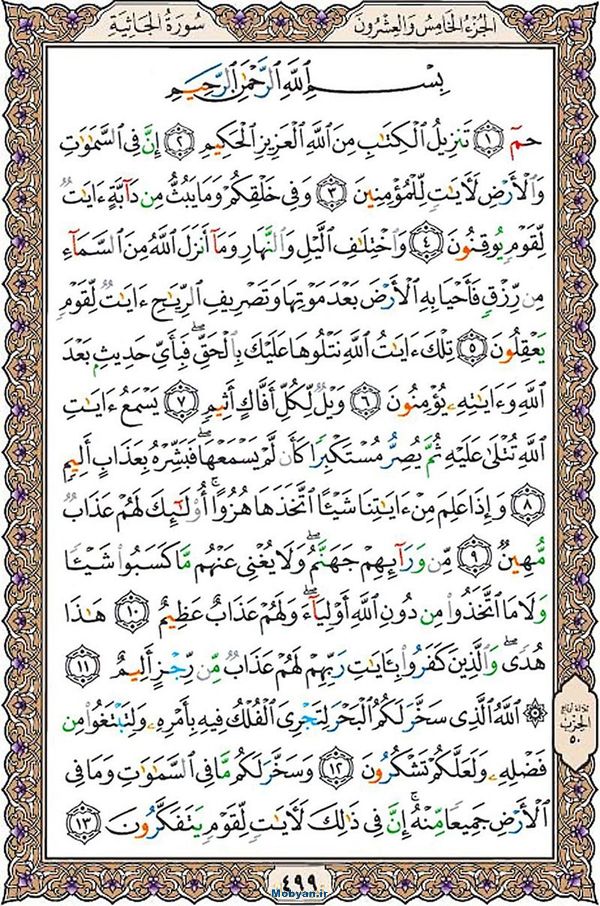 الجُزءُ الخَامِسُ وَالعِشرُون
سُورَةُ الجَاثِيَة
بِسۡمِ ٱللَّهِ ٱلرَّحۡمَٰنِ ٱلرَّحِيمِ
حمٓ ١ تَنزِيلُ ٱلۡكِتَٰبِ مِنَ ٱللَّهِ ٱلۡعَزِيزِ ٱلۡحَكِيمِ ٢ إِنَّ فِي ٱلسَّمَٰوَٰتِ
وَٱلۡأَرۡضِ لَأٓيَٰتٖ لِّلۡمُؤۡمِنِينَ ٣ وَفِي خَلۡقِكُمۡ وَمَا يَبُثُّ مِن دَآبَّةٍ ءَايَٰتٞ
لِّقَوۡمٖ يُوقِنُونَ ٤ وَٱخۡتِلَٰفِ ٱلَّيۡلِ وَٱلنَّهَارِ وَمَآ أَنزَلَ ٱللَّهُ مِنَ ٱلسَّمَآءِ
مِن رِّزۡقٖ فَأَحۡيَا بِهِ ٱلۡأَرۡضَ بَعۡدَ مَوۡتِهَا وَتَصۡرِيفِ ٱلرِّيَٰحِ ءَايَٰتٞ لِّقَوۡمٖ
يَعۡقِلُونَ ٥ تِلۡكَ ءَايَٰتُ ٱللَّهِ نَتۡلُوهَا عَلَيۡكَ بِٱلۡحَقِّۖ فَبِأَيِّ حَدِيثِۭ بَعۡدَ
ٱللَّهِ وَءَايَٰتِهِۦ يُؤۡمِنُونَ ٦ وَيۡلٞ لِّكُلِّ أَفَّاكٍ أَثِيمٖ ٧ يَسۡمَعُ ءَايَٰتِ
ٱللَّهِ تُتۡلَىٰ عَلَيۡهِ ثُمَّ يُصِرُّ مُسۡتَكۡبِرٗا كَأَن لَّمۡ يَسۡمَعۡهَاۖ فَبَشِّرۡهُ بِعَذَابٍ أَلِيمٖ
٨ وَإِذَا عَلِمَ مِنۡ ءَايَٰتِنَا شَيۡـًٔا ٱتَّخَذَهَا هُزُوًاۚ أُوْلَٰٓئِكَ لَهُمۡ عَذَابٞ
مُّهِينٞ ٩ مِّن وَرَآئِهِمۡ جَهَنَّمُۖ وَلَا يُغۡنِي عَنۡهُم مَّا كَسَبُواْ شَيۡـٔٗا
وَلَا مَا ٱتَّخَذُواْ مِن دُونِ ٱللَّهِ أَوۡلِيَآءَۖ وَلَهُمۡ عَذَابٌ عَظِيمٌ ١٠ هَٰذَا
هُدٗىۖ وَٱلَّذِينَ كَفَرُواْ بِـَٔايَٰتِ رَبِّهِمۡ لَهُمۡ عَذَابٞ مِّن رِّجۡزٍ أَلِيمٌ ١١
۞ ٱللَّهُ ٱلَّذِي سَخَّرَ لَكُمُ ٱلۡبَحۡرَ لِتَجۡرِيَ ٱلۡفُلۡكُ فِيهِ بِأَمۡرِهِۦ وَلِتَبۡتَغُواْ مِن
فَضۡلِهِۦ وَلَعَلَّكُمۡ تَشۡكُرُونَ ١٢ وَسَخَّرَ لَكُم مَّا فِي ٱلسَّمَٰوَٰتِ وَمَا فِي
ٱلۡأَرۡضِ جَمِيعٗا مِّنۡهُۚ إِنَّ فِي ذَٰلِكَ لَأٓيَٰتٖ لِّقَوۡمٖ يَتَفَكَّرُونَ ١٣
ثلاثة أرباع
الحِزب
٥٠
٤٩٩
Mobyan.ir